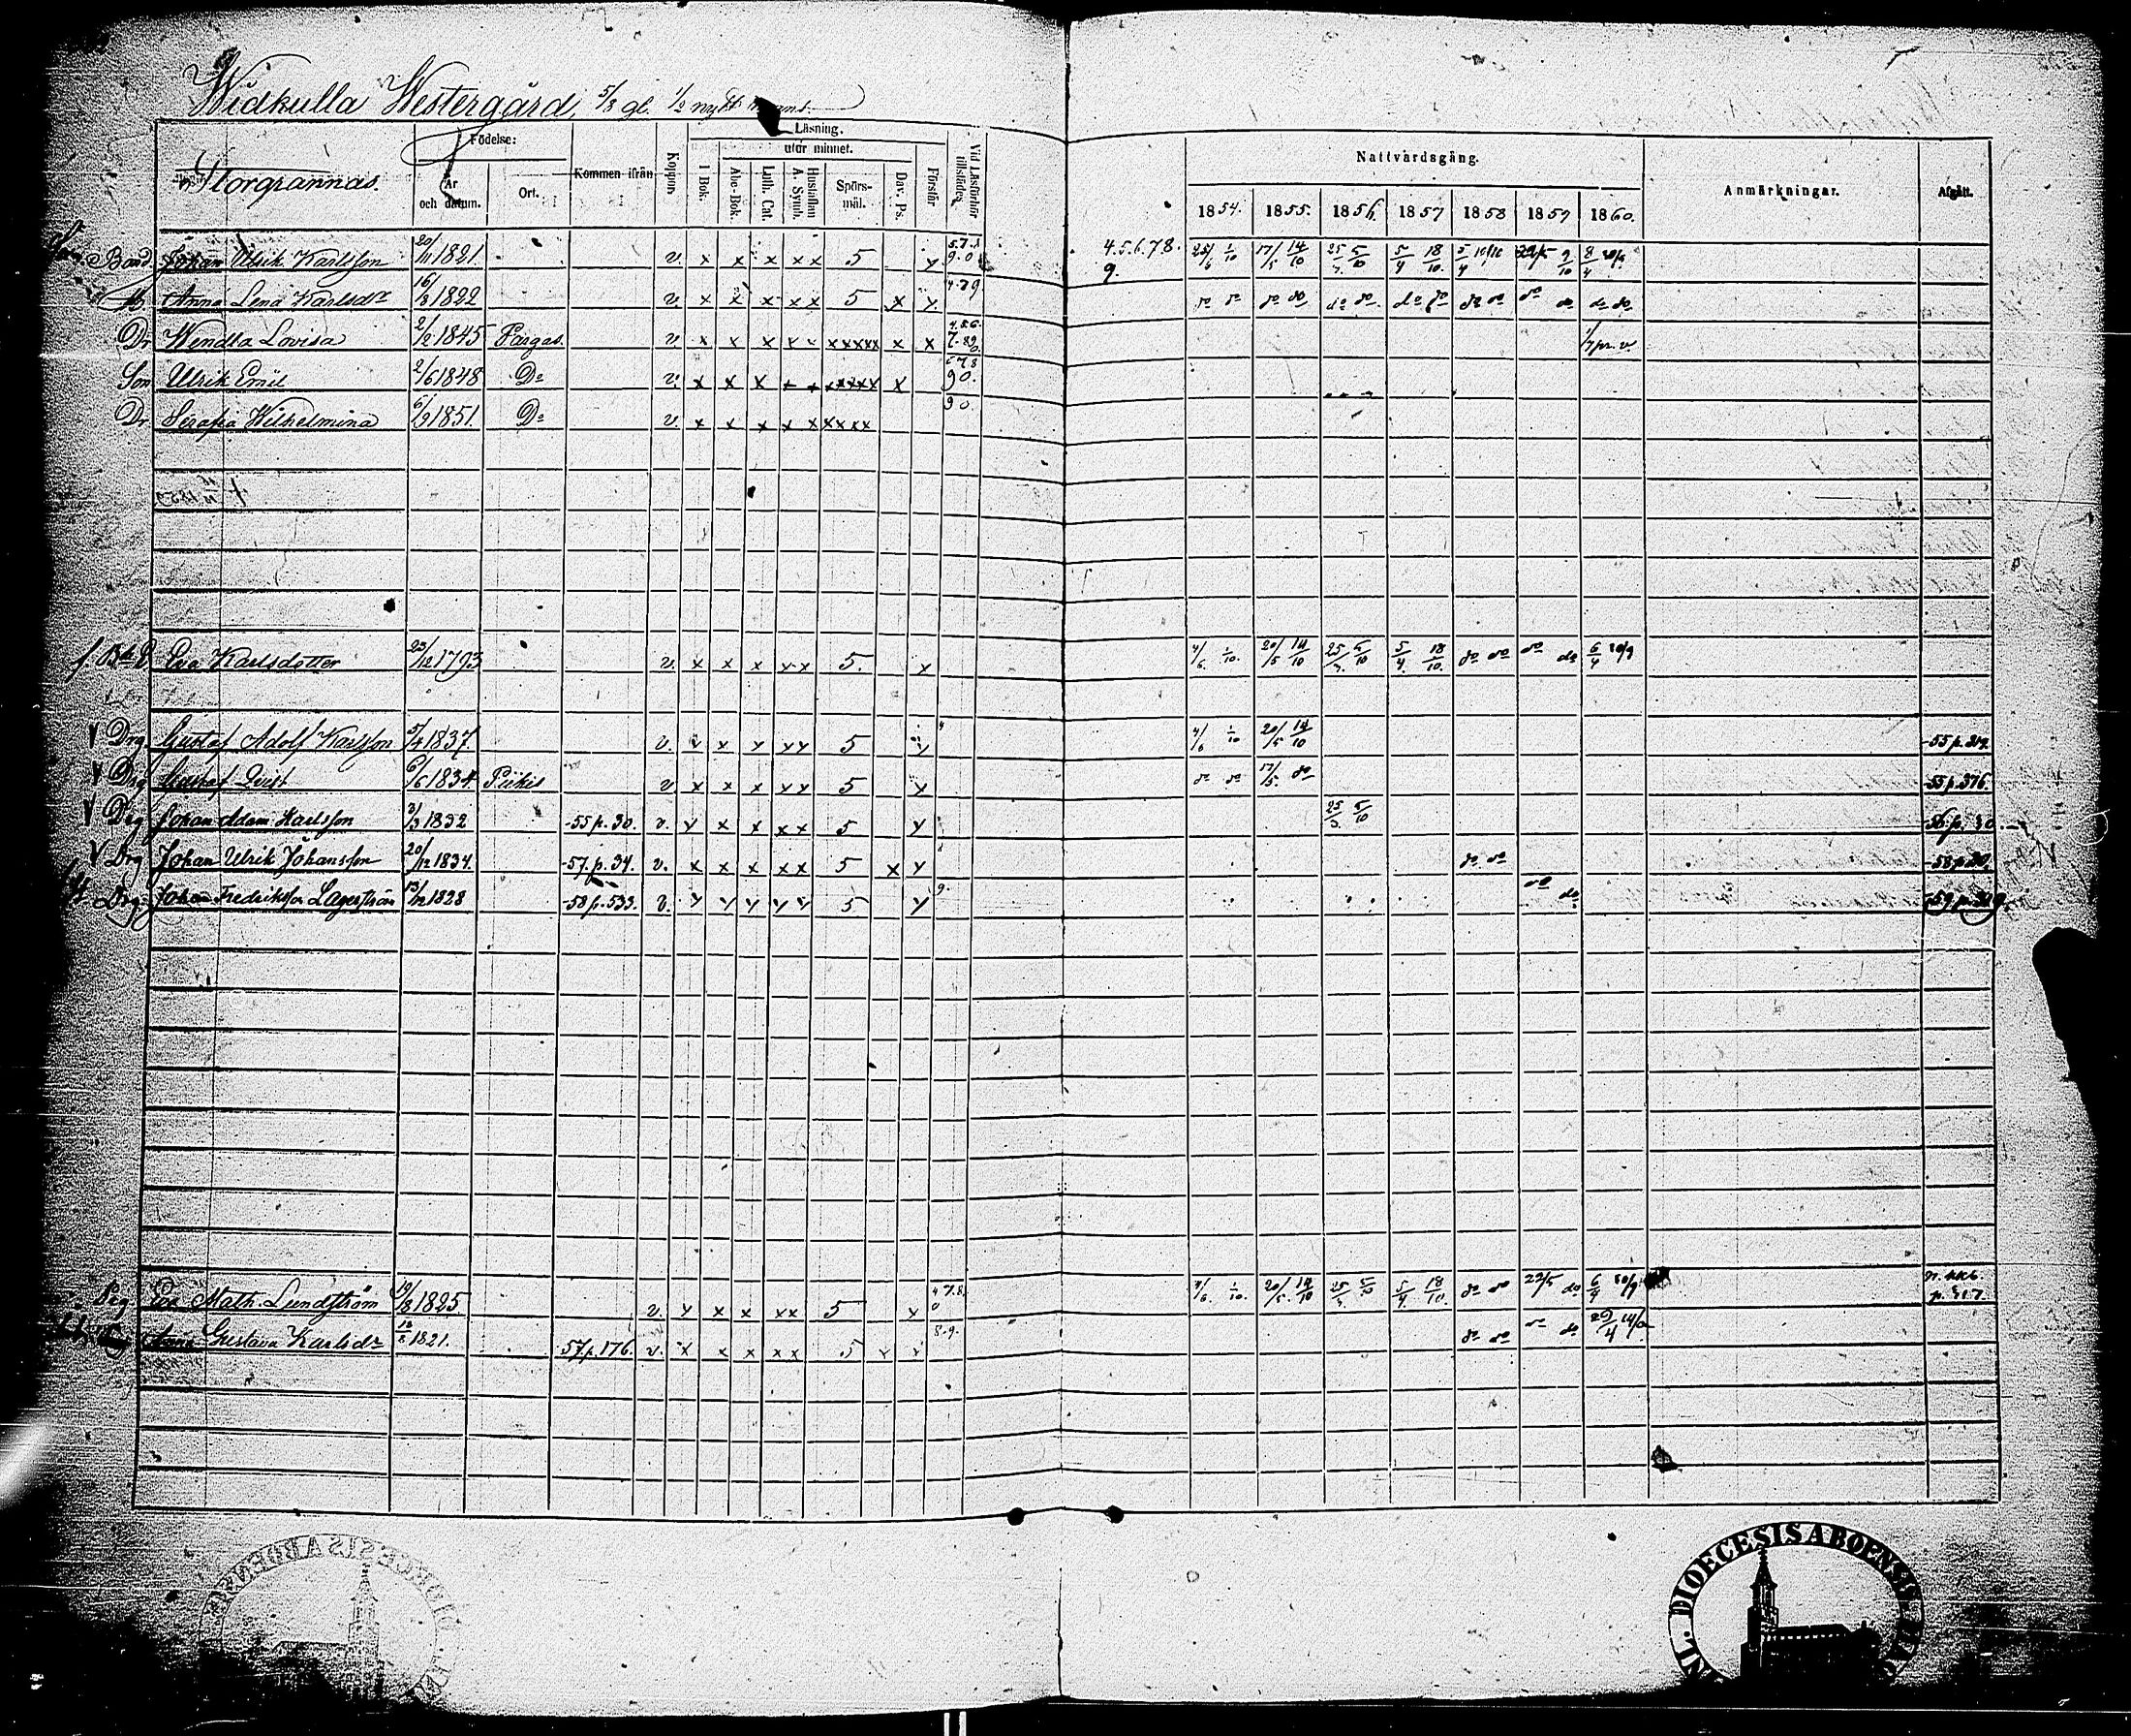 Widkulla Westergård, 5/8 gl. 1/2 nytt
Storgrannas.
Födelse:
År och datum.
Ort.
Kommen ifrån
Koppor.
Läsning.
I Bok.
utur minnet.
Abc-Bok.
Luth. Cat.
Hustaflan A. Symb.
Spörs-mål.
Dav. Ps.
Förstår
Vid Läsförhör tillstädes
Nattvardsgång.
1854. 1855. 1856. 1857 1858 1859 1860.
Anmärkningar.
Afgått.
Bond. Johan Ulrik Karlsson 20/11 1821. v. x x x x x 5 x 5.7.8 9.0 4.5.6.7.8. 9. 25/6 1/10 17/5 14/10 25/3 5/10 5/4 18/10. 5/4 10/10 9/10 8/4
H. Anna Lena Karlsdr 16/8 1822 v. x x x x x 5 x x 4.79 do do do do do do do do do do do do do do
Dr Wendla Lovisa 2/2 1845 Pargas. v. x x x x x xxxxx x x 7.89 1/7 pr. v.
Son Ulrik Emil 2/6 1848 Do v. x x x x x xxxxx x 5 78 90.
Dr Serafia Wilhelmina 6/9 1851. Do v. x x x x x xxxxx 90.
f Bd Eva Karlsdotter 23/12 1793 v. x x x x x 5. x 4/6 1/10. 20/5 14/10 25/3 5/10 5/4 18/10. do do do do 6/4 30/9
V Drg Gustaf Adolf Karlsson 5/4 1837. v. x x x x x 5 x 4 4/6 1/10 20/5 14/10 -55 p. 319.
V Drg Gustaf Qvist 6/6 1834. Piikis v. x x x x x 5 x do do 17/5. do -55 p. 376.
V Drg Johan Adam Karlsson 3/3 1832 -55 p. 30. v. x x x x x 5 x 25/3. 5/10 -56 p. 30
V Drg Johan Ulrik Johansson 20/12 1834. -57. p. 34. v. x x x x x 5 x x do do -58 p. 30.
Drg Johan Fredriksson Lagerström 13/12 1828 -58 p. 533. v. x x x x x 5 x 9. do do -59 p. 319.
Pig Eva Math. Lundström 19/8 1825. v. x x x x x 5 x 4 7.8. 0 4/6. 1/10. 20/5. 14/10 25/3. 5/10 5/4. 18/10. do do 22/5 do 6/4 30/9 p. 317.
Anna Gustava Karlsdr 1821. 57. p. 176. v. x x x x x 5 x x 8.9. do do do do 29/4
DIOECESIS ABOENSIS